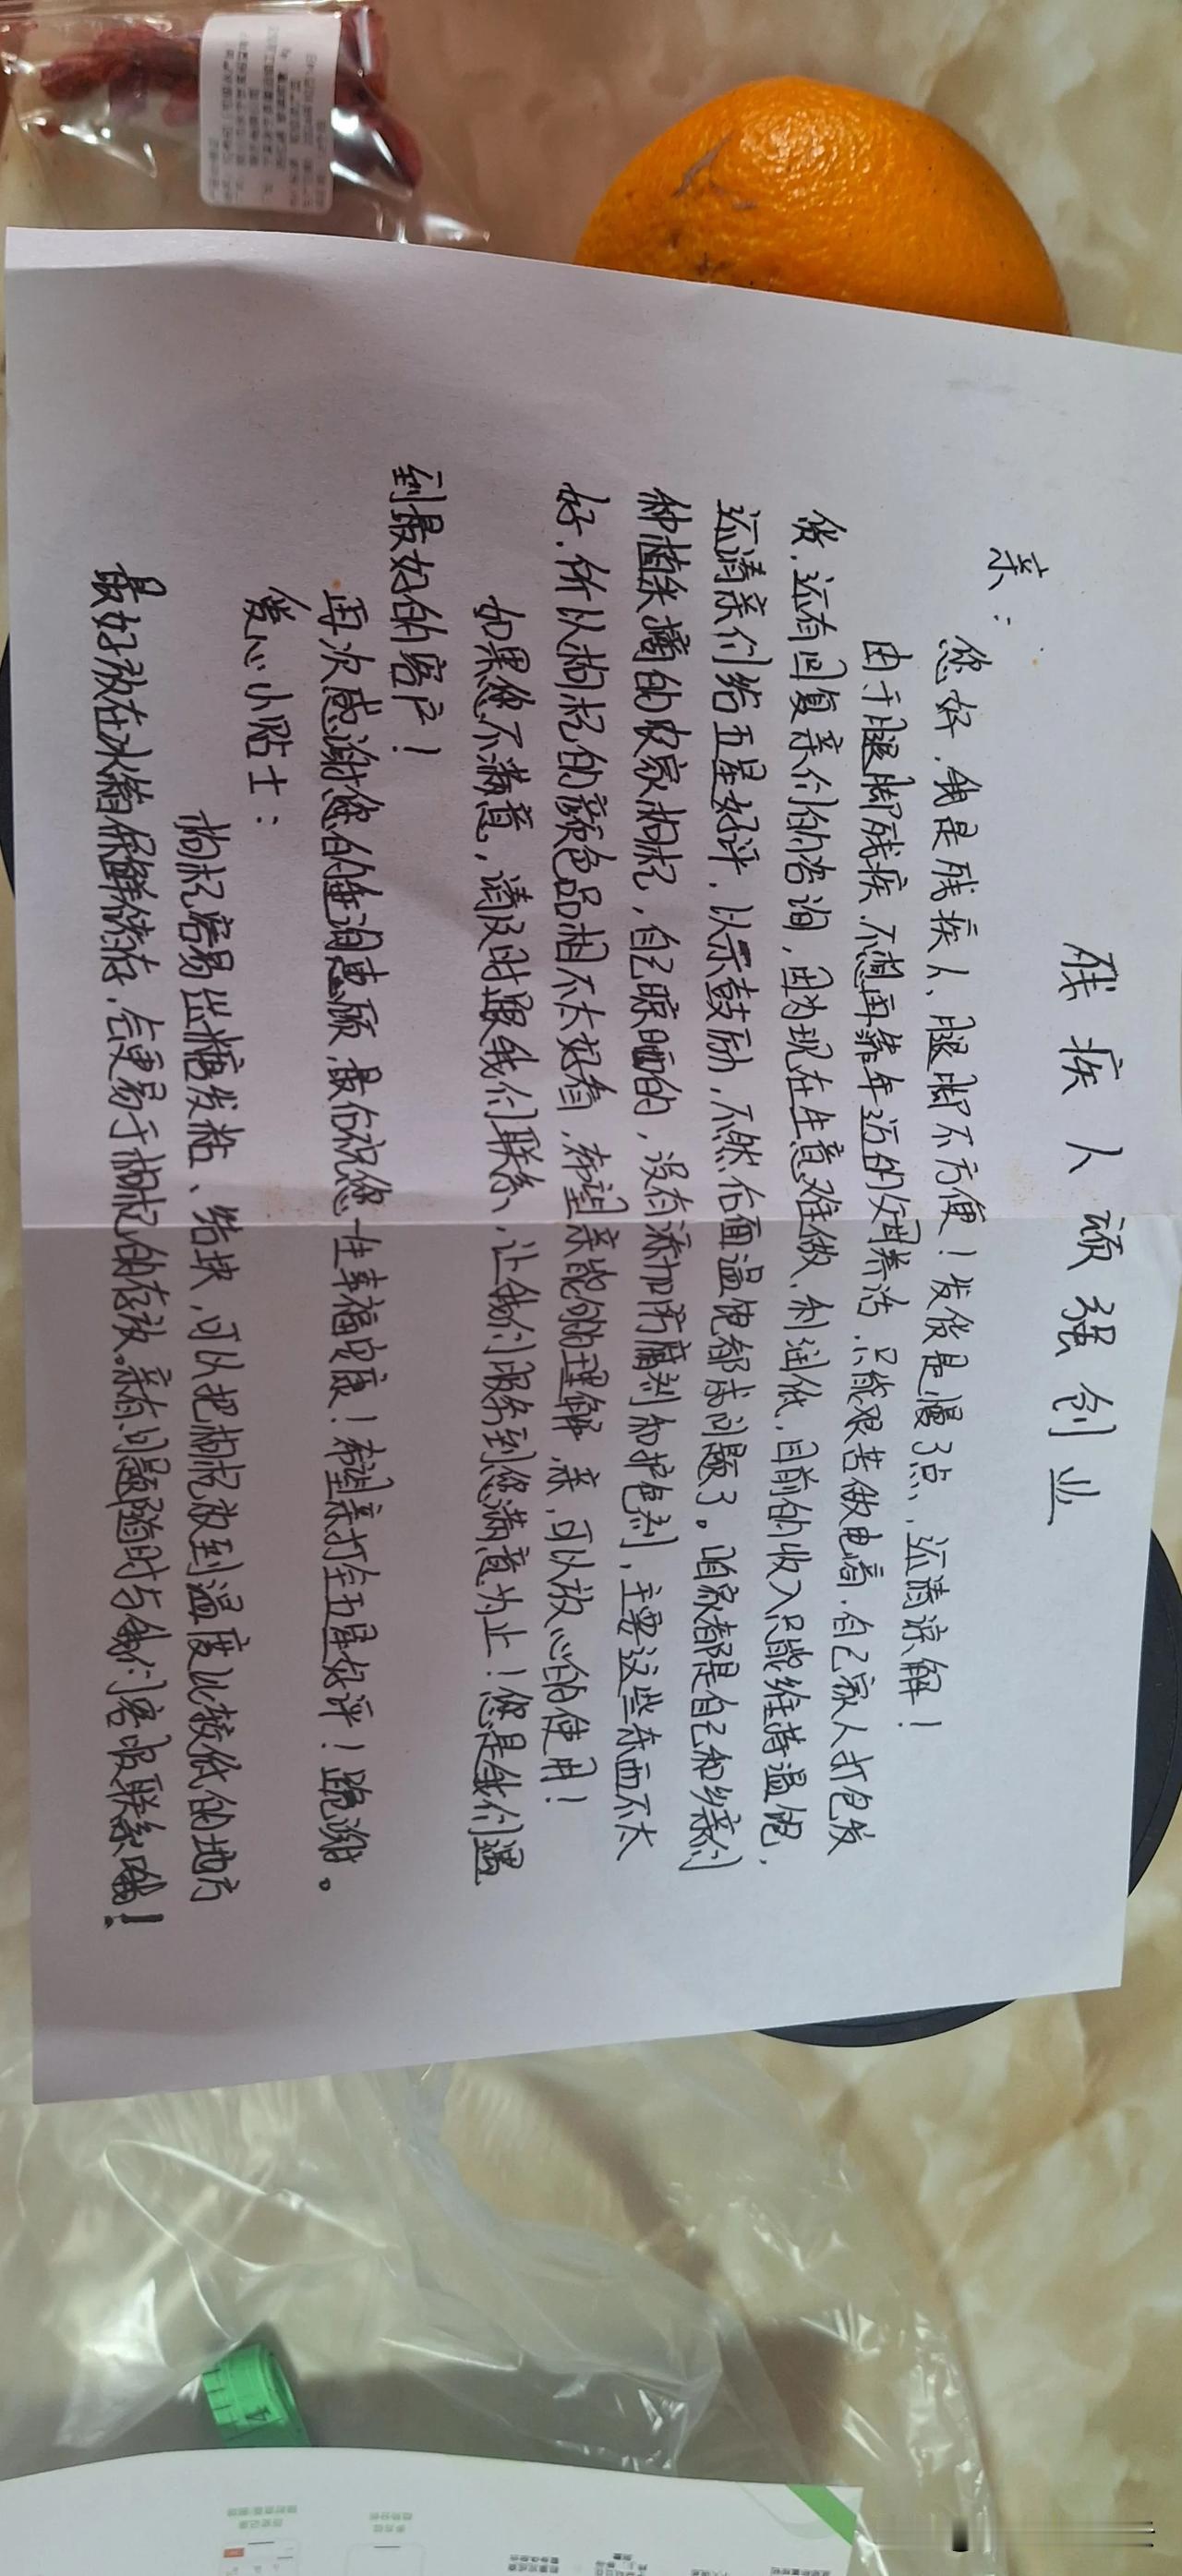 残疾人顽强创业
亲：
您好，我是残疾人，腿脚不方便！发货是慢了点，还请谅解！
由于腿脚残疾，不想再靠年迈的父母养活，只能艰苦做电商，自己家人打包发
货，还有回复亲们的咨询，因为现在生意难做，利润低，目前的收入只能维持温饱，
还请亲们给五星好评，以示鼓励，不然后面温饱都成问题了。咱家都是自己和乡亲们
种植采摘的农家枸杞，自己晾晒的，没有添加防腐剂和护色剂，主要这些东西不太
好，所以枸杞的颜色品相不太好看，希望亲能够的理解，亲，可以放心的使用！
如果您不满意，请及时跟我们联系，让我们服务到您满意为止！您是我们遇
到最好的客户！
再次感谢您的垂询惠顾，最后祝您一生幸福安康！希望亲打全五星好评！跪谢。
爱心小贴士：
枸杞容易出糖发粘、结块，可以把枸杞放到温度比较低的地方
最好放在冰箱保鲜储存，会更易于枸杞的存放。亲有问题随时与我们客服联系哦！
4